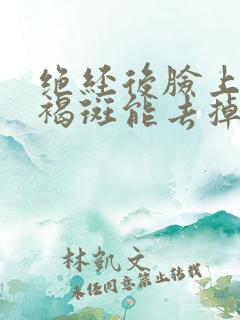 绝经後臉上
褐斑能去掉
林凱文
未经同意禁止转载